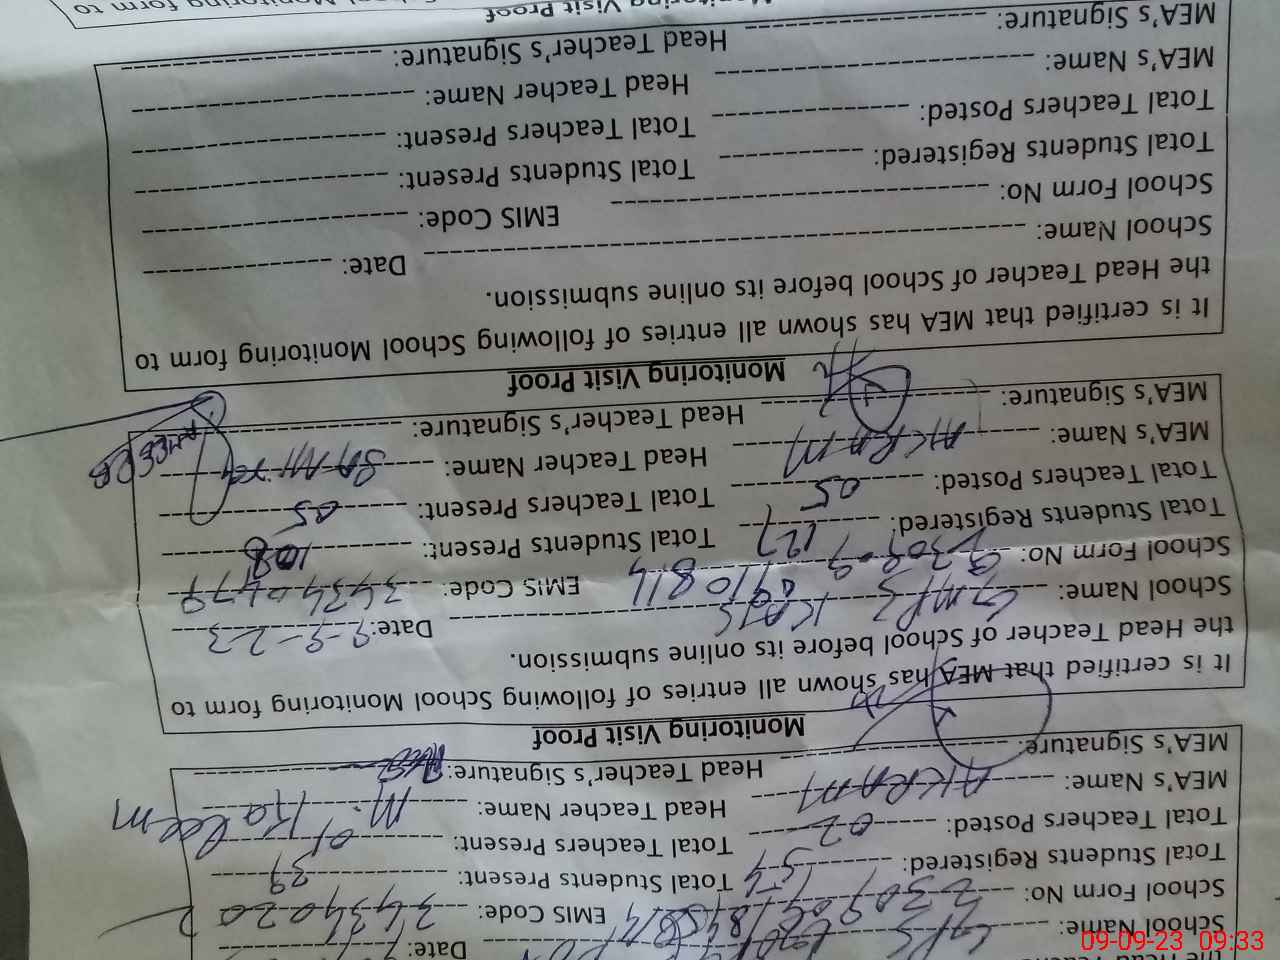 the Head Teacher
School Name: GPS Date:
School Form No: EMIS Code: 34340202
Total Students Registered: 54 Total Students Present: 39
Total Teachers Posted: 02 Total Teachers Present: 01
MEA's Name: AKRAM Head Teacher Name: M. Kaleem
MEA's Signature: Head Teacher's Signature:
Monitoring Visit Proof
It is certified that MEA has shown all entries of following School Monitoring form to
the Head Teacher of School before its online submission.
School Name: GMPS Date: 9-9-23
School Form No: EMIS Code: 34340479
Total Students Registered: 127 Total Students Present: 108
Total Teachers Posted: 05 Total Teachers Present: 05
MEA's Name: AKRAM Head Teacher Name:
MEA's Signature: Head Teacher's Signature:
Monitoring Visit Proof
It is certified that MEA has shown all entries of following School Monitoring form to
the Head Teacher of School before its online submission.
School Name: Date:
School Form No: EMIS Code:
Total Students Registered: Total Students Present:
Total Teachers Posted: Total Teachers Present:
MEA's Name: Head Teacher Name:
MEA's Signature: Head Teacher's Signature:
Monitoring Visit Proof
School Monitoring form to
09-09-23 09:33